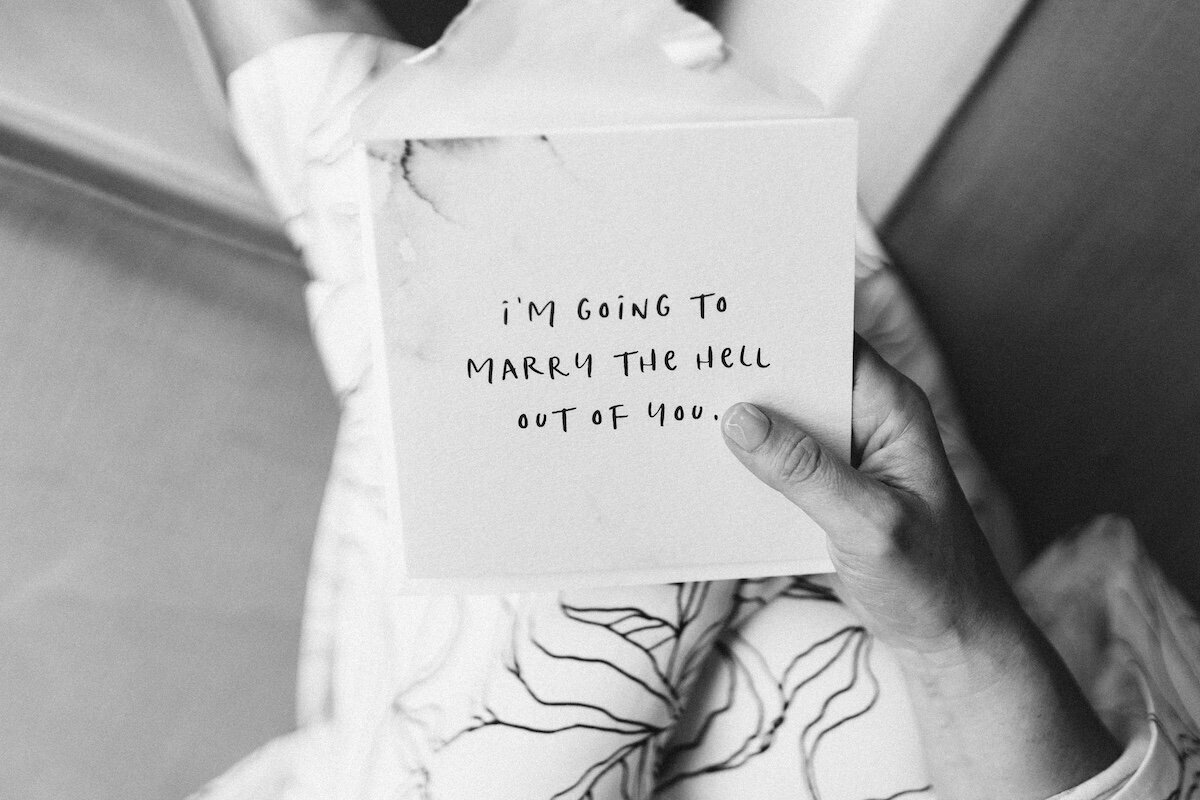 i'm GOiNG TO
MARRY THe HeLL
OUT OF YOU.